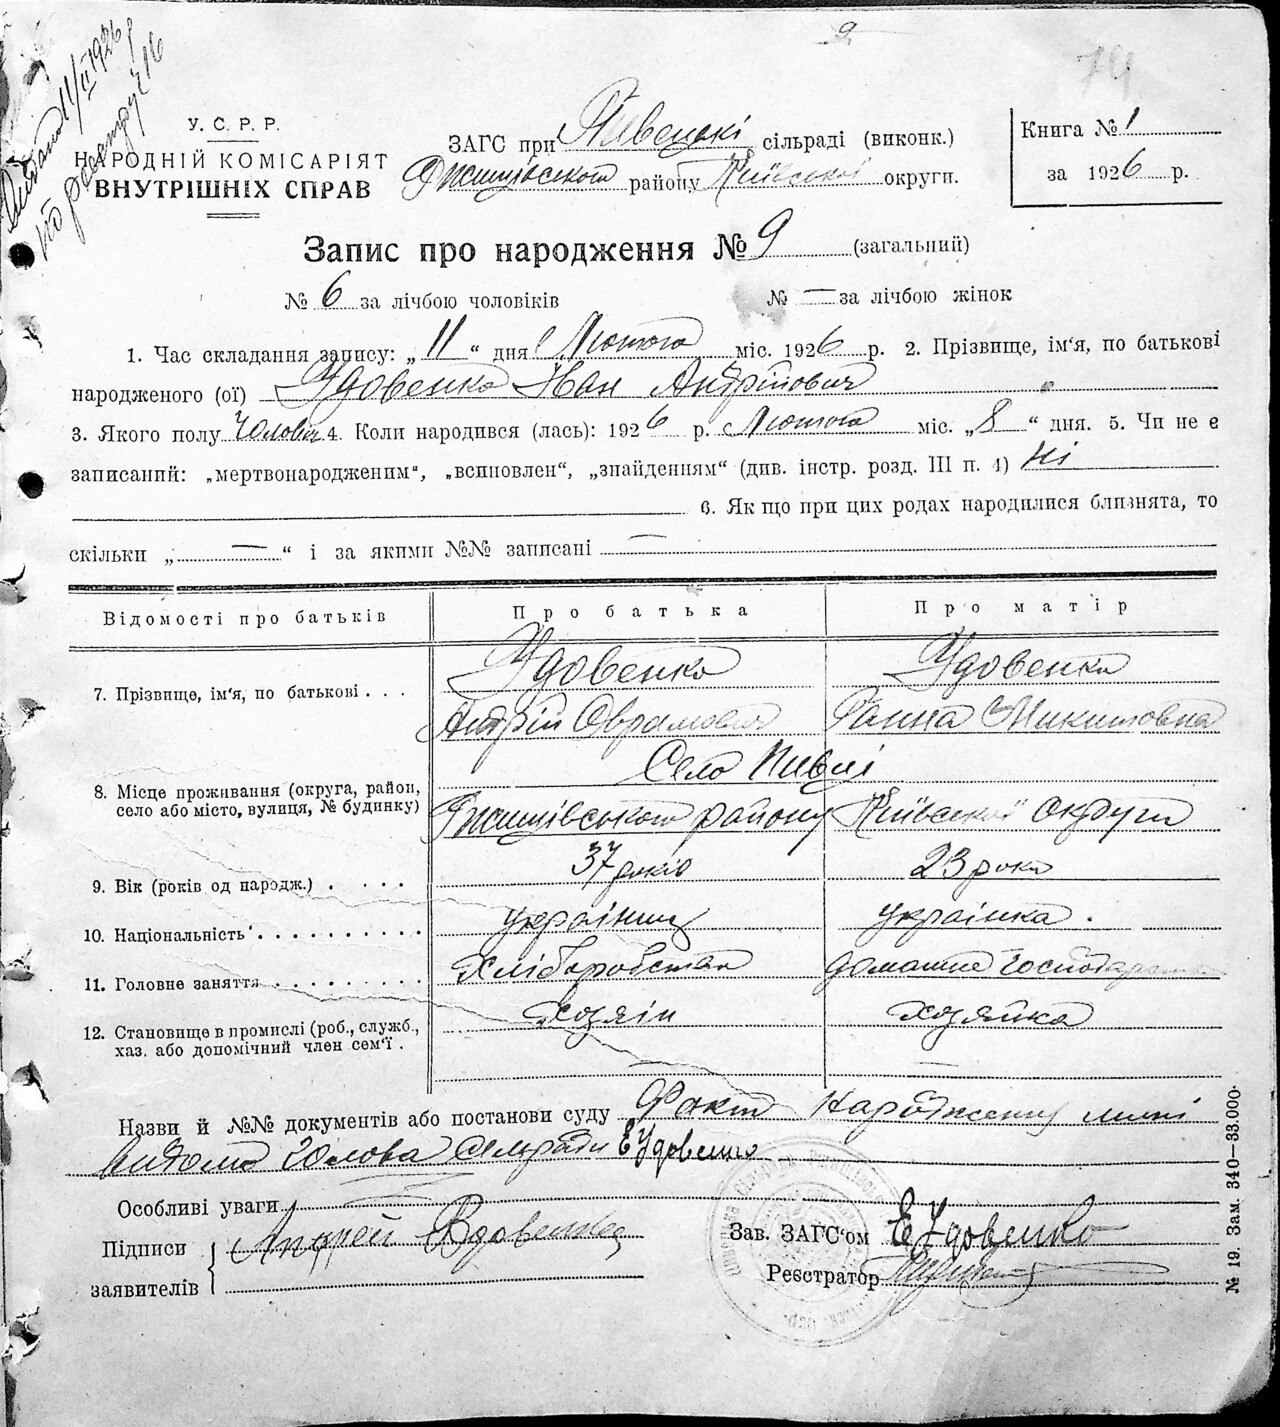 Видано 11/II 1926 р
по реестру № 16
9
74
У. С. Р. Р.
НАРОДНІЙ КОМІСАРІЯТ
ВНУТРІШНІХ СПРАВ
ЗАГС при Пивецькі сільраді (виконк.)
Ржищівського району Київської округи.
Книга № 1
за 1926 р.
Запис про народження № 9 (загальний)
№ 6 за лічбою чоловіків № — за лічбою жінок
1. Час складання запису: „11“ дня Лютого міс. 1926 р. 2. Прізвище, ім'я, по батькові
народженого (ої) Удовенко Іван Андрійович
3. Якого полу Чоловіч 4. Коли народився (лась): 1926 р. Лютого міс. „8“ дня. 5. Чи не є
записаний: „мертвонародженим“, „всиновлен“, „знайденням“ (див. інстр. розд. III п. 4) Ні
6. Як що при цих родах народилися близнята, то
скільки „—“ і за якими №№ записані —
Відомості про батьків Про батька Про матір
7. Прізвище, ім'я, по батькові . . . Удовенко Удовенко
Андрій Оврамович Ганна Микитовна
Село Пивці
8. Місце проживання (округа, район,
село або місто, вулиця, № будинку) Ржищівського району Київської округи
9. Вік (років од народж.) . . . . 37 років 23 роки
10. Національність . . . . . . . . . . українець українка .
11. Головне заняття . . . . . . . . . Хліборобство домашнє господарство
12. Становище в промислі (роб., служб.,
хаз. або допомічний член сем'ї . хозяін хозяйка
Назви й №№ документів або постанови суду Факт народженя мині
видомо Голова Сельради Е Удовенко
Особливі уваги
Підписи
заявителів Андрей Вдовенко
Зав. ЗАГС'ом Е Удовенко
Реєстратор
№ 19. Зам. 340—33.000.